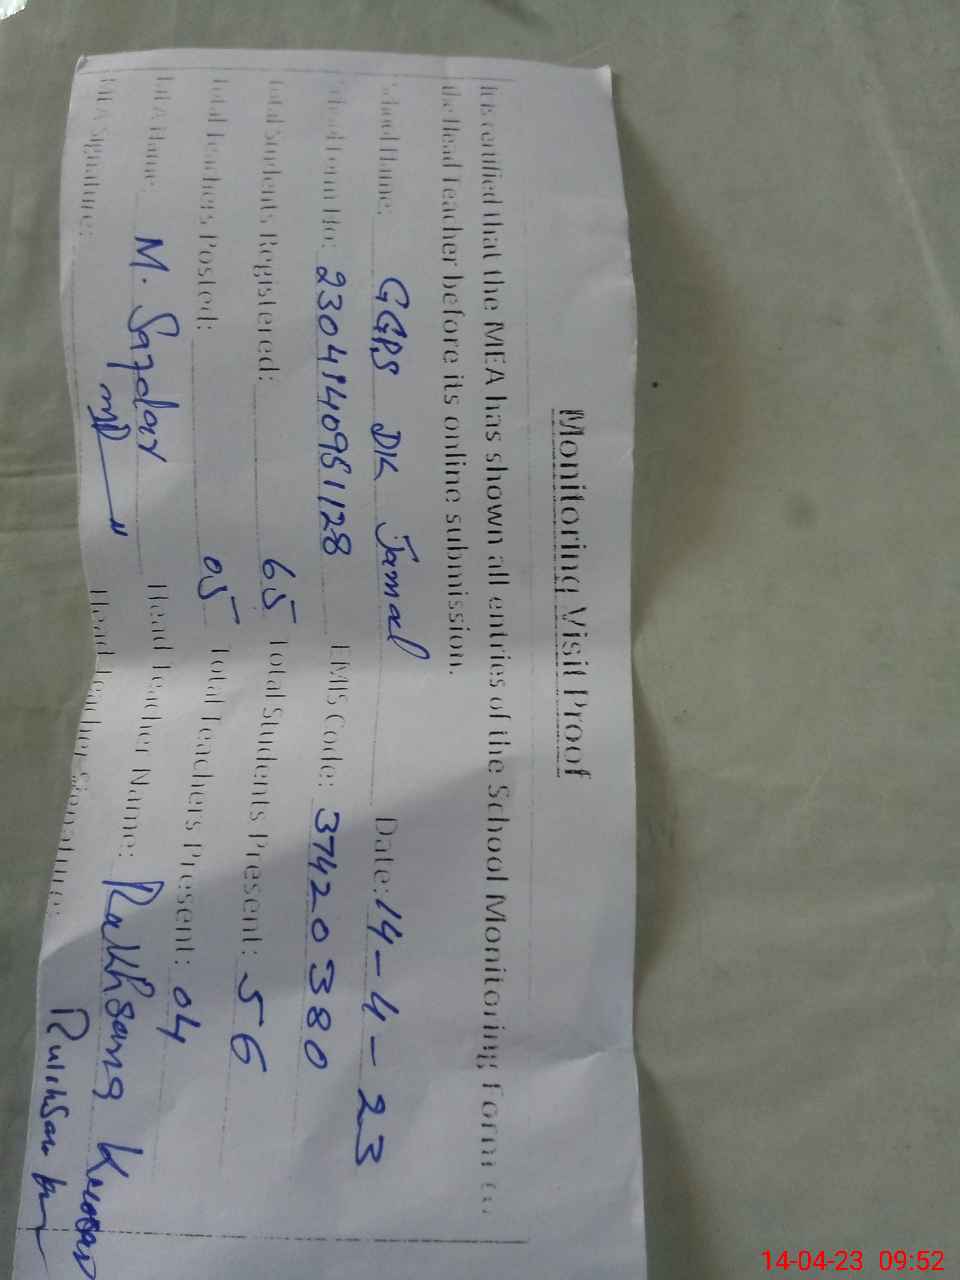 Monitoring Visit Proof
It is certified that the MEA has shown all entries of the School Monitoring Form to
the Head Teacher before its online submission.
School Name: GGPS DK Jamal Date: 14-4-23
School Form No: 2304140951128 EMIS Code: 37420380
Total Students Registered: 65 Total Students Present: 56
Total Teachers Posted: 05 Total Teachers Present: 04
MEA Name: M. Safdar Head Teacher Name: Rakhsana Kousar
MEA Signature: Head Teacher Signature:
14-04-23 09:52